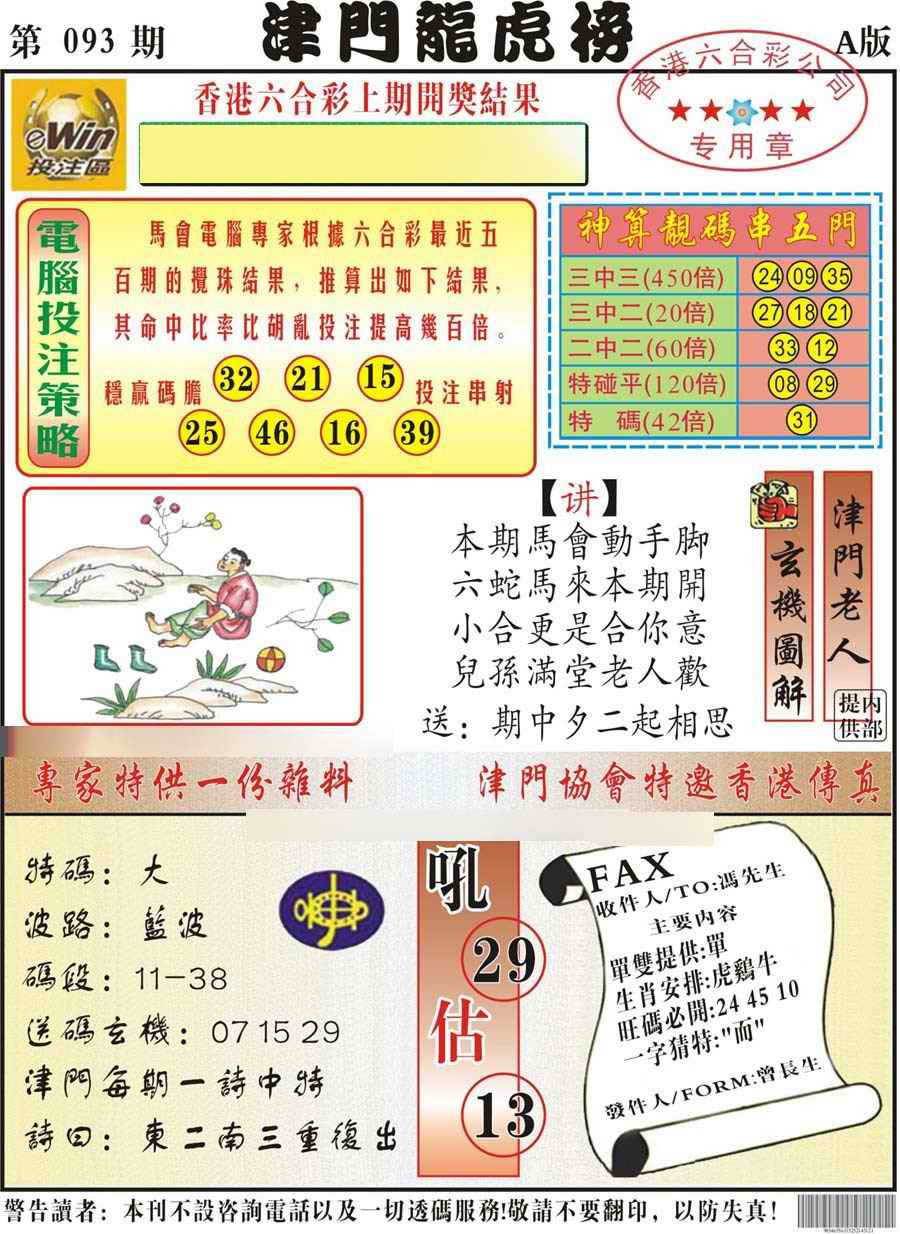 第 093 期
津門龍虎榜
A版
香港六合彩上期開獎結果
香港六合彩公司
专用章
eWin
投注區
電腦投注策略
馬會電腦專家根據六合彩最近五
百期的攪珠結果，推算出如下結果，
其命中比率比胡亂投注提高幾百倍。
穩贏碼膽 32 21 15 投注串射
25 46 16 39
神算靚碼串五門
三中三(450倍) 24 09 35
三中二(20倍) 27 18 21
二中二(60倍) 33 12
特碰平(120倍) 08 29
特 碼(42倍) 31
【讲】
本期馬會動手脚
六蛇馬來本期開
小合更是合你意
兒孫滿堂老人歡
送：期中夕二起相思
玄機圖解
津門老人
内部提供
專家特供一份雜料
津門協會特邀香港傳真
特碼：大
波路：藍波
碼段：11-38
送碼玄機：07 15 29
津門每期一詩中特
詩曰：東二南三重復出
吼
29
估
13
FAX
收件人/TO:馮先生
主要内容
單雙提供:單
生肖安排:虎鷄牛
旺碼必開:24 45 10
一字猜特:"而"
發件人/FORM:曾長生
警告讀者：本刊不設咨詢電話以及一切透碼服務!敬請不要翻印，以防失真！